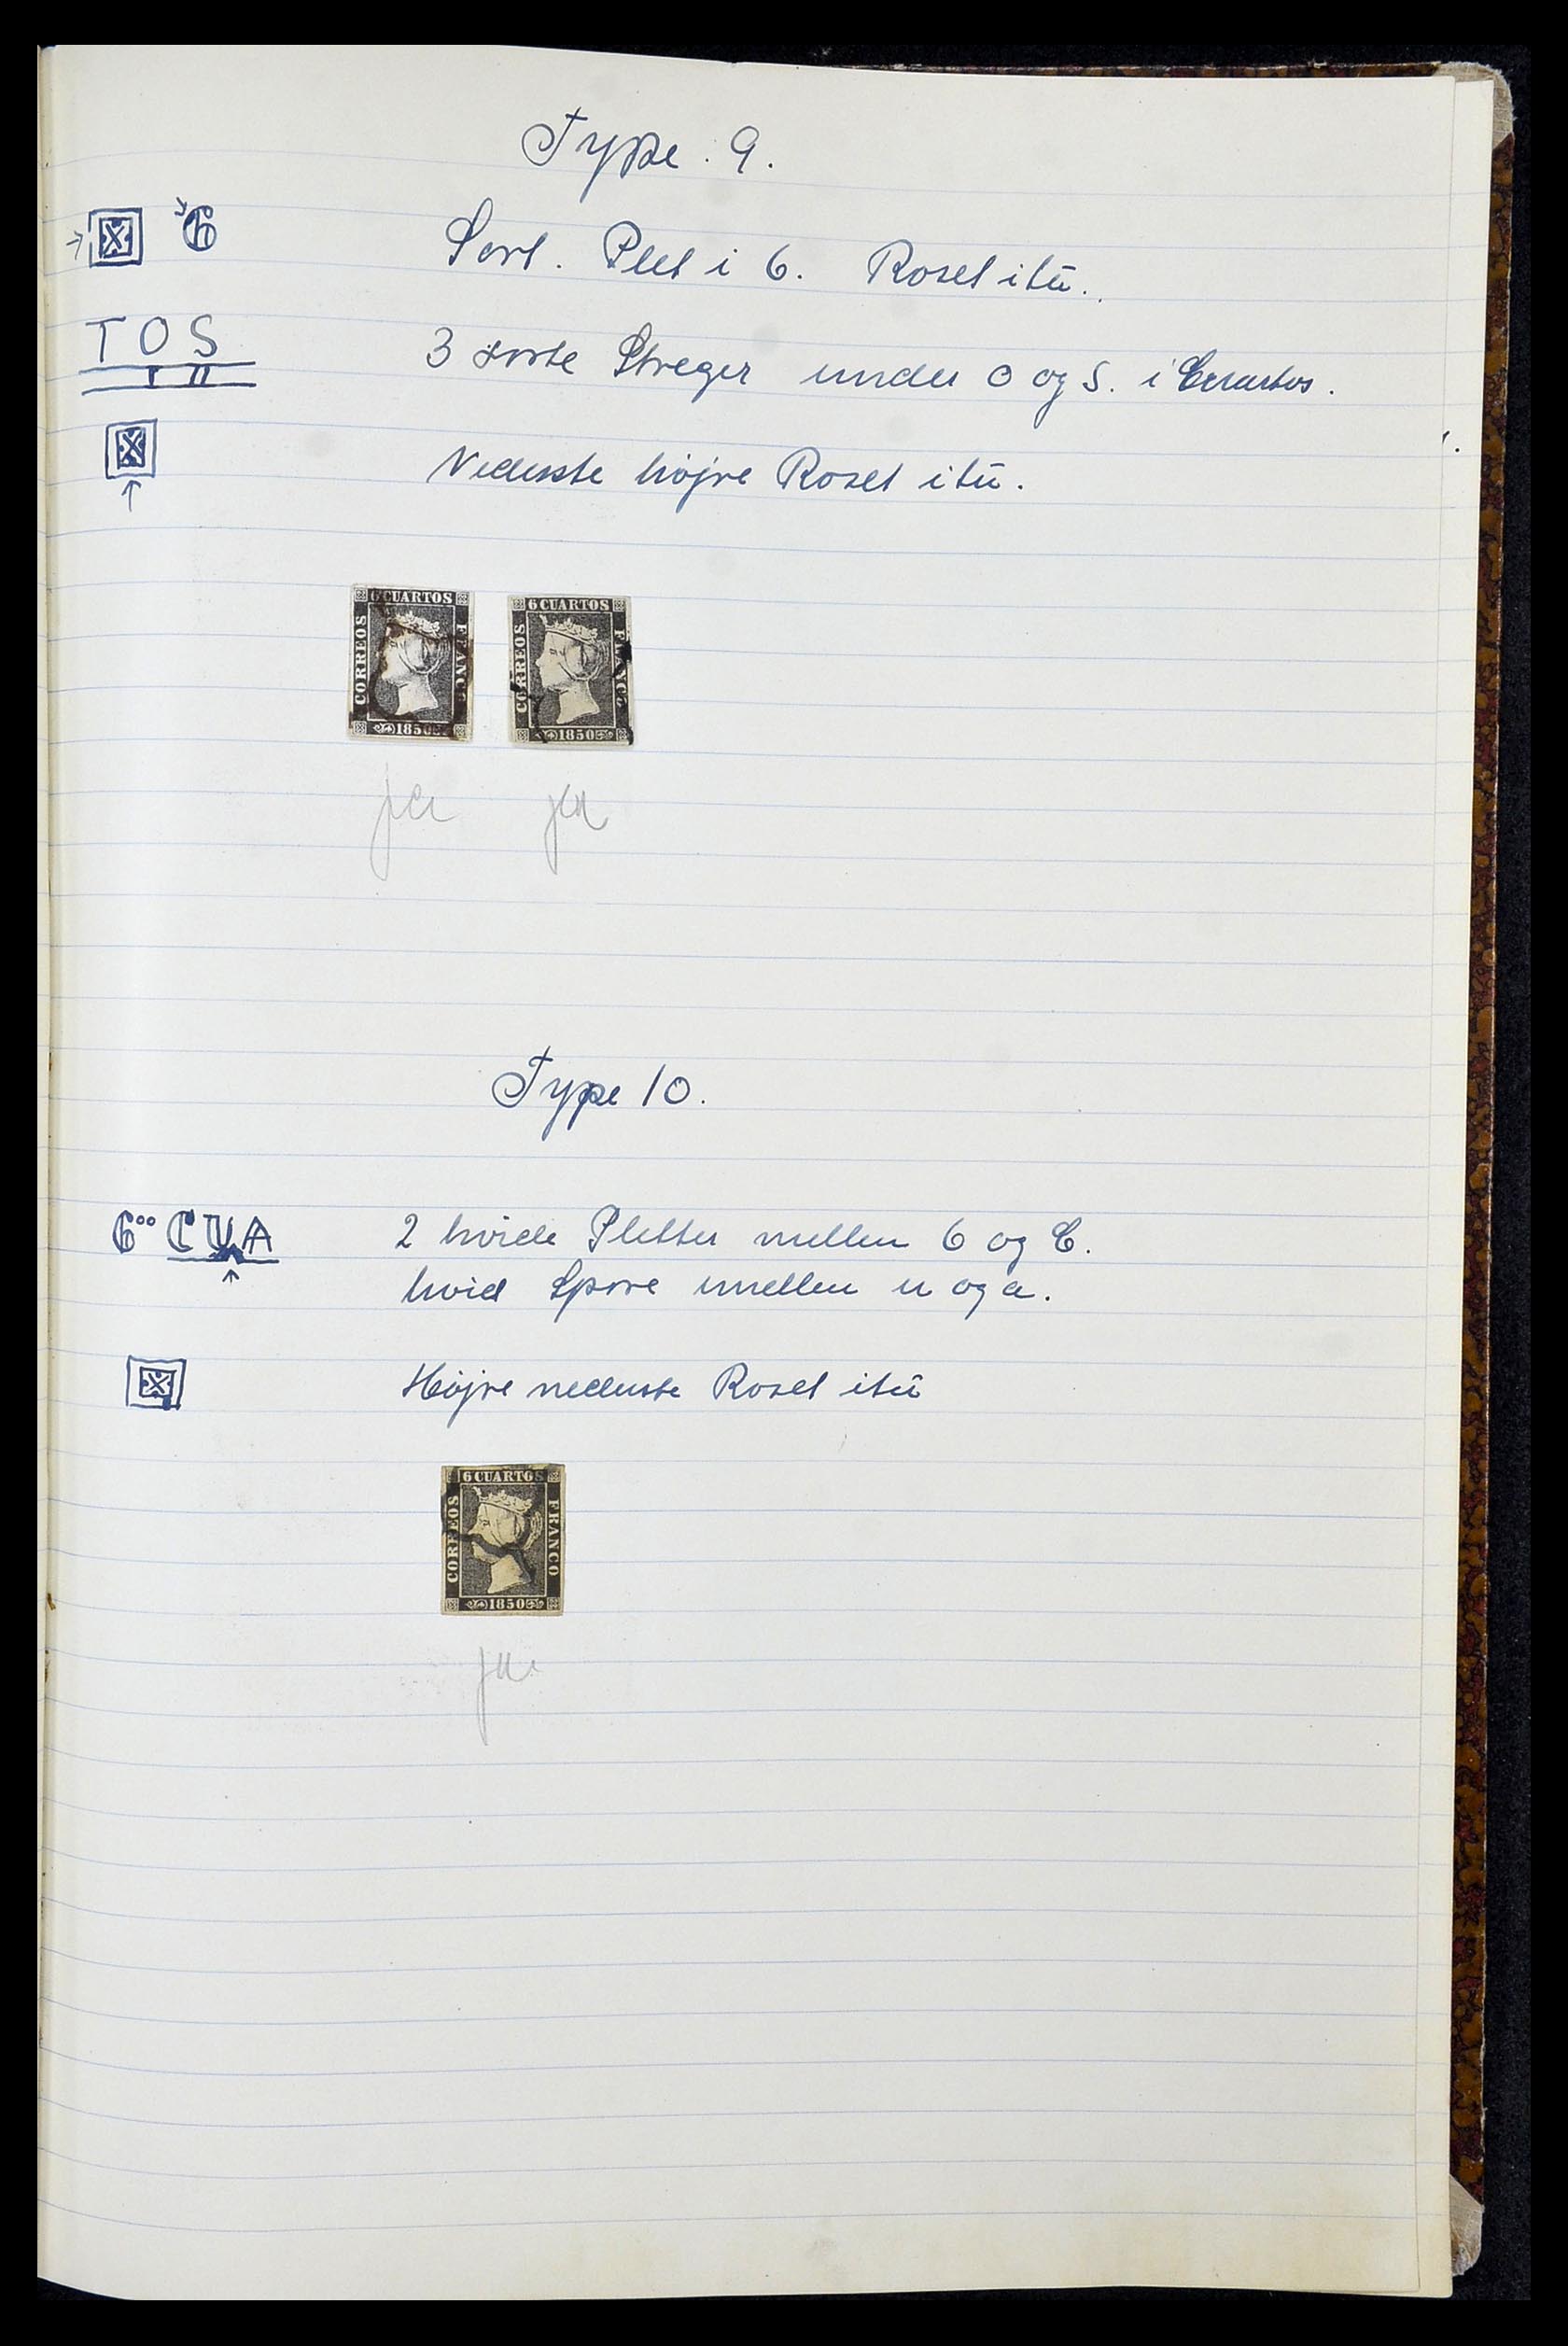 Type. 9.
6 Sort. Plet i 6. Roset itū.
TOS 3 sorte Streger under O og S. i Cuartos.
Nederste højre Roset itū.
6 CUARTOS CORREOS FRANCO 1850
6 CUARTOS CORREOS FRANCO 1850
ja ja
Type 10.
6°° CUA 2 hvide Pletter mellem 6 og C.
hvid Spore imellem u og a.
Højre nederste Roset itū
6 CUARTOS CORREOS FRANCO 1850
ja